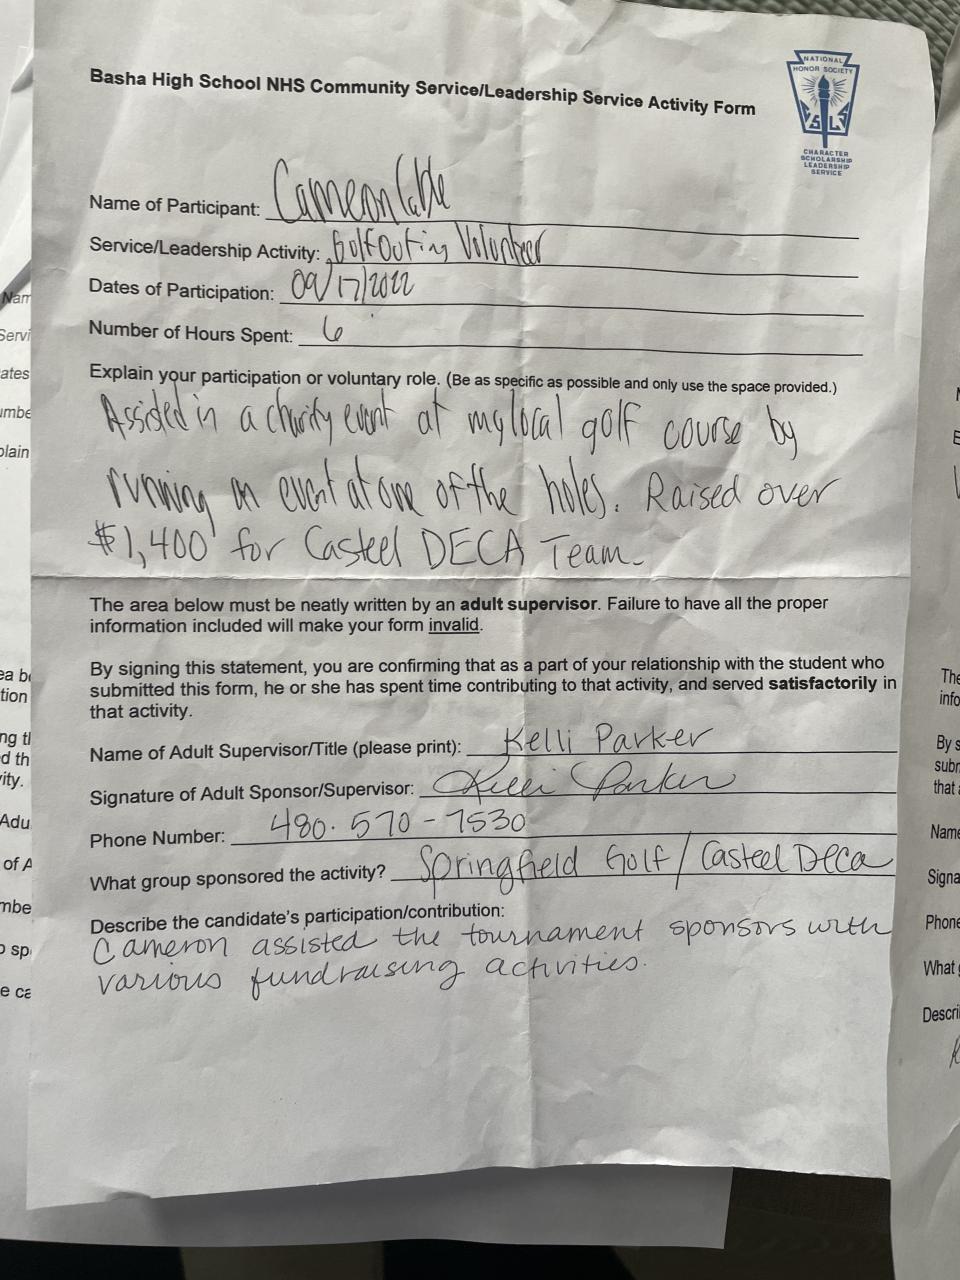 Basha High School NHS Community Service/Leadership Service Activity Form
NATIONAL
HONOR SOCIETY
S L S
CHARACTER
SCHOLARSHIP
LEADERSHIP
SERVICE
Name of Participant: Cameron
Service/Leadership Activity: Golf Outing Volunteer
Dates of Participation: 09/17/2022
Number of Hours Spent: 6
Explain your participation or voluntary role. (Be as specific as possible and only use the space provided.)
Assisted in a charity event at my local golf course by
running an event at one of the holes. Raised over
$1,400 for Casteel DECA Team.
The area below must be neatly written by an adult supervisor. Failure to have all the proper
information included will make your form invalid.
By signing this statement, you are confirming that as a part of your relationship with the student who
submitted this form, he or she has spent time contributing to that activity, and served satisfactorily in
that activity.
Name of Adult Supervisor/Title (please print): Kelli Parker
Signature of Adult Sponsor/Supervisor: Kelli Parker
Phone Number: 480.570-7530
What group sponsored the activity? Springfield Golf/Casteel Deca
Describe the candidate's participation/contribution:
Cameron assisted the tournament sponsors with
various fundraising activities.